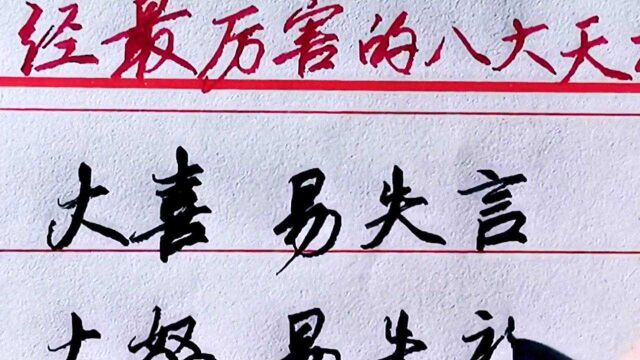 经最厉害的八大天
大喜 易失言
大怒 易失礼